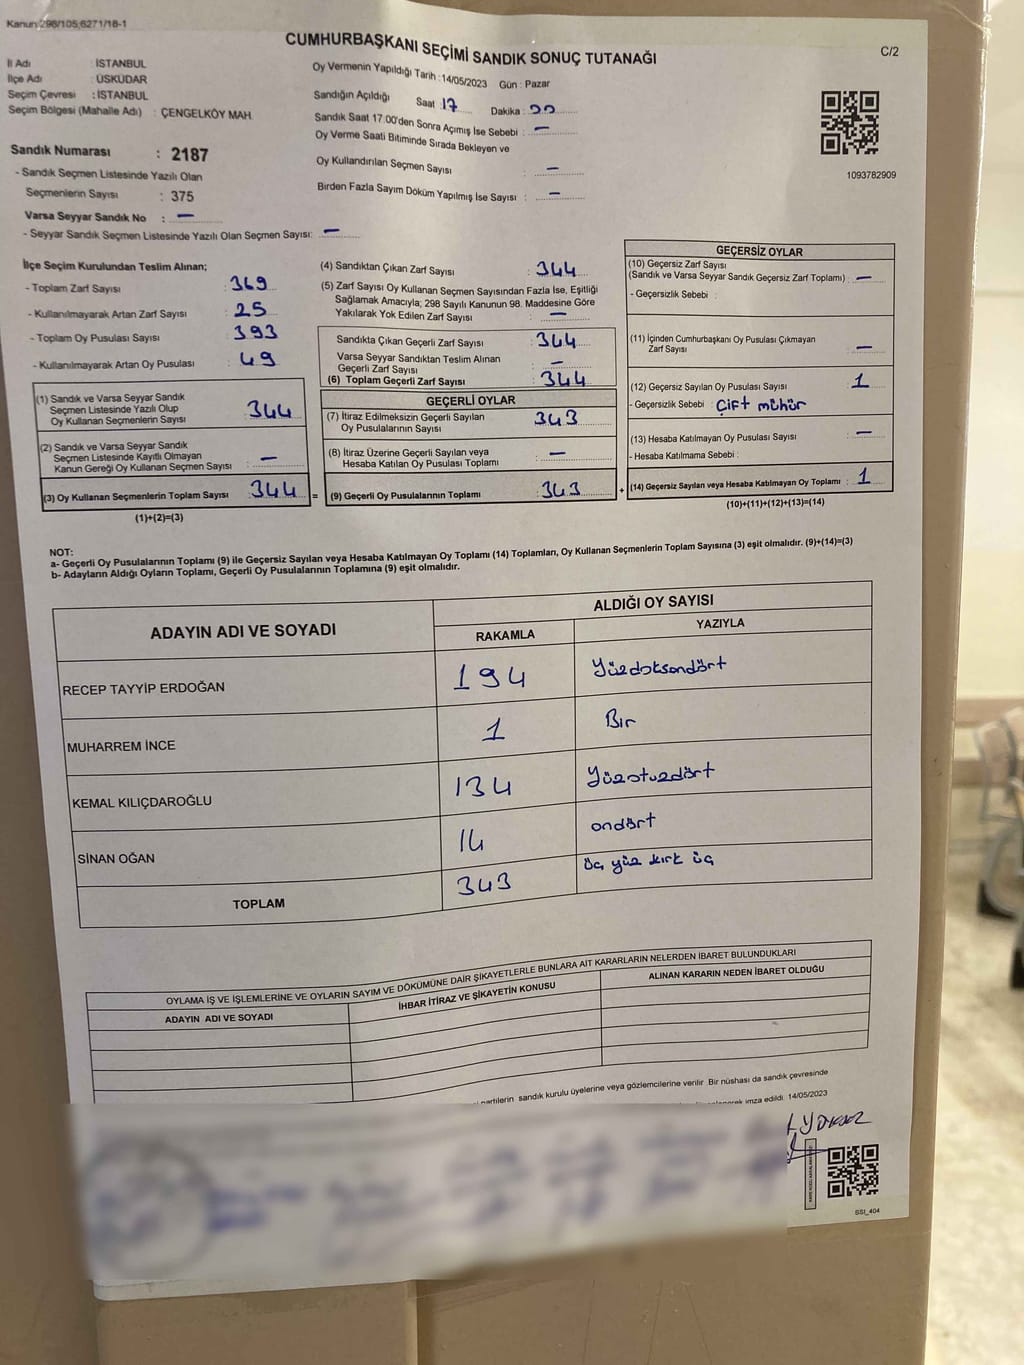 Kanun:298/105,6271/16-1
CUMHURBAŞKANI SEÇİMİ SANDIK SONUÇ TUTANAĞI
C/2
İl Adı : İSTANBUL
İlçe Adı : ÜSKÜDAR
Seçim Çevresi : İSTANBUL
Seçim Bölgesi (Mahalle Adı) : ÇENGELKÖY MAH.
Sandık Numarası : 2187
- Sandık Seçmen Listesinde Yazılı Olan
Seçmenlerin Sayısı : 375
Varsa Seyyar Sandık No : —
- Seyyar Sandık Seçmen Listesinde Yazılı Olan Seçmen Sayısı: —
Oy Vermenin Yapıldığı Tarih : 14/05/2023 Gün : Pazar
Sandığın Açıldığı Saat 17 Dakika : 00
Sandık Saat 17.00'den Sonra Açımış İse Sebebi : —
Oy Verme Saati Bitiminde Sırada Bekleyen ve
Oy Kullandırılan Seçmen Sayısı : —
Birden Fazla Sayım Döküm Yapılmış İse Sayısı : —
1093782909
İlçe Seçim Kurulundan Teslim Alınan;
- Toplam Zarf Sayısı : 369
- Kullanılmayarak Artan Zarf Sayısı : 25
- Toplam Oy Pusulası Sayısı : 393
- Kullanılmayarak Artan Oy Pusulası : 49
(1) Sandık ve Varsa Seyyar Sandık
Seçmen Listesinde Yazılı Olup
Oy Kullanan Seçmenlerin Sayısı : 344
(2) Sandık ve Varsa Seyyar Sandık
Seçmen Listesinde Kayıtlı Olmayan
Kanun Gereği Oy Kullanan Seçmen Sayısı : —
(3) Oy Kullanan Seçmenlerin Toplam Sayısı : 344 =
(1)+(2)=(3)
(4) Sandıktan Çıkan Zarf Sayısı : 344
(5) Zarf Sayısı Oy Kullanan Seçmen Sayısından Fazla İse, Eşitliği
Sağlamak Amacıyla; 298 Sayılı Kanunun 98. Maddesine Göre
Yakılarak Yok Edilen Zarf Sayısı : —
Sandıkta Çıkan Geçerli Zarf Sayısı : 344
Varsa Seyyar Sandıktan Teslim Alınan
Geçerli Zarf Sayısı : —
(6) Toplam Geçerli Zarf Sayısı : 344
GEÇERLİ OYLAR
(7) İtiraz Edilmeksizin Geçerli Sayılan
Oy Pusulalarının Sayısı : 343
(8) İtiraz Üzerine Geçerli Sayılan veya
Hesaba Katılan Oy Pusulası Toplamı : —
(9) Geçerli Oy Pusulalarının Toplamı : 343 +
GEÇERSİZ OYLAR
(10) Geçersiz Zarf Sayısı
(Sandık ve Varsa Seyyar Sandık Geçersiz Zarf Toplamı) : —
- Geçersizlik Sebebi :
(11) İçinden Cumhurbaşkanı Oy Pusulası Çıkmayan
Zarf Sayısı : —
(12) Geçersiz Sayılan Oy Pusulası Sayısı : 1
- Geçersizlik Sebebi : Çift mühür
(13) Hesaba Katılmayan Oy Pusulası Sayısı : —
- Hesaba Katılmama Sebebi :
(14) Geçersiz Sayılan veya Hesaba Katılmayan Oy Toplamı : 1
(10)+(11)+(12)+(13)=(14)
NOT:
a- Geçerli Oy Pusulalarının Toplamı (9) ile Geçersiz Sayılan veya Hesaba Katılmayan Oy Toplamı (14) Toplamları, Oy Kullanan Seçmenlerin Toplam Sayısına (3) eşit olmalıdır. (9)+(14)=(3)
b- Adayların Aldığı Oyların Toplamı, Geçerli Oy Pusulalarının Toplamına (9) eşit olmalıdır.
ADAYIN ADI VE SOYADI
ALDIĞI OY SAYISI
RAKAMLA YAZIYLA
RECEP TAYYİP ERDOĞAN 194 Yüzdoksandört
MUHARREM İNCE 1 Bir
KEMAL KILIÇDAROĞLU 134 Yüzotuzdört
SİNAN OĞAN 14 ondört
TOPLAM 343 üç yüz kırk üç
OYLAMA İŞ VE İŞLEMLERİNE VE OYLARIN SAYIM VE DÖKÜMÜNE DAİR ŞİKAYETLERLE BUNLARA AİT KARARLARIN NELERDEN İBARET BULUNDUKLARI
ADAYIN ADI VE SOYADI İHBAR İTİRAZ VE ŞİKAYETİN KONUSU ALINAN KARARIN NEDEN İBARET OLDUĞU
partilerin sandık kurulu üyelerine veya gözlemcilerine verilir Bir nüshası da sandık çevresinde
imza edildi 14/05/2023
SSI_404